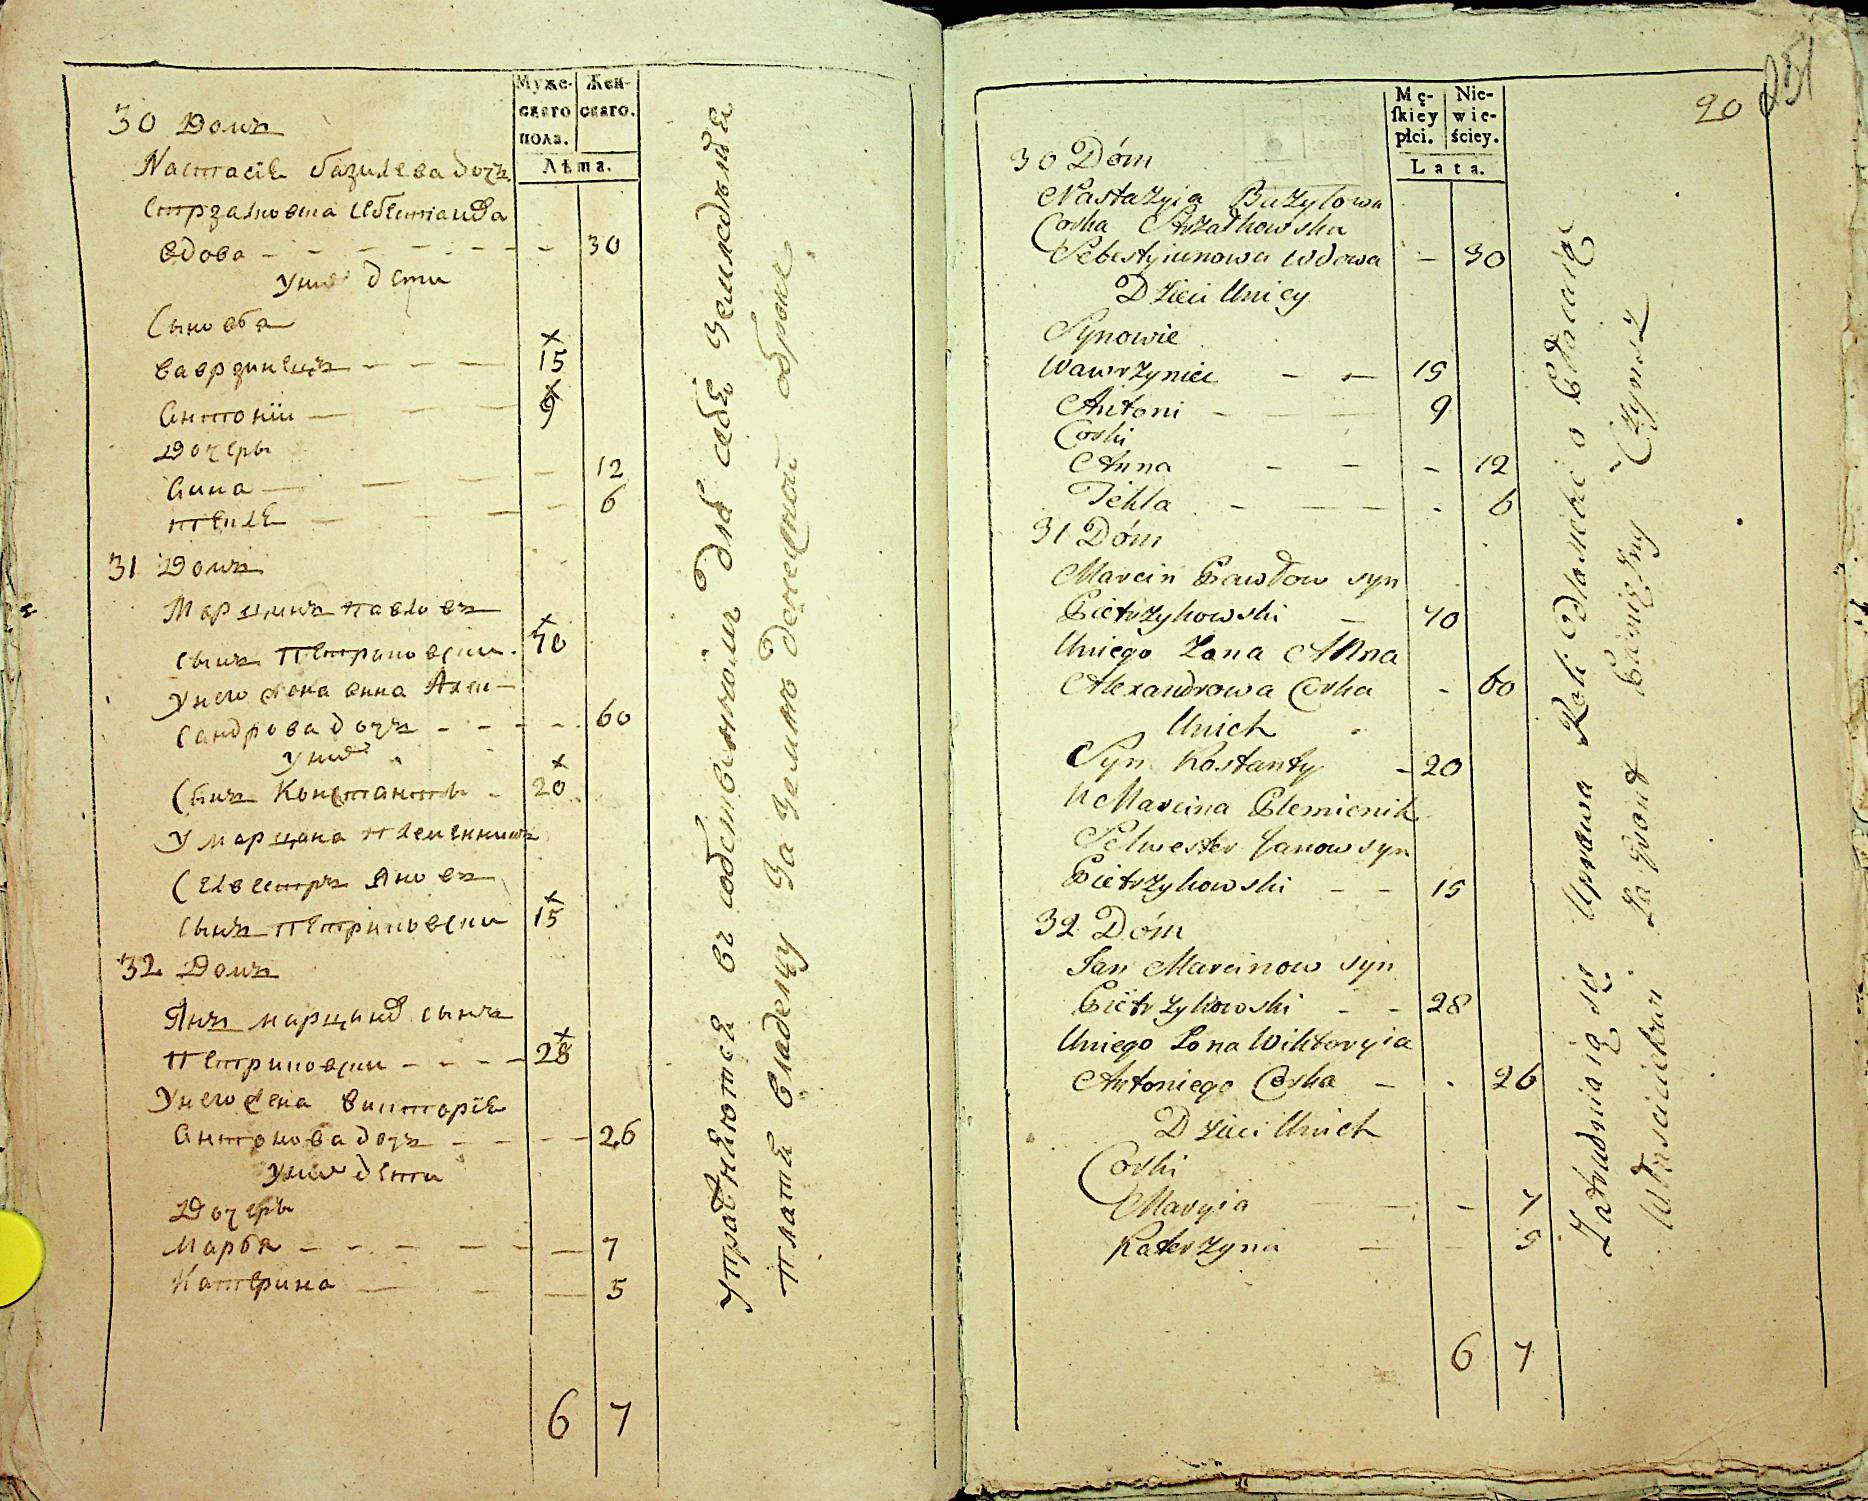 Муже-
скаго
пола.
Жен-
скаго.
Лѣта.
30 Домъ
Настасіѧ базилева дочъ
Стрзалковска Себестіанова
вдова - - - 30
У них дети
Сыновѣ
Ваврзинецъ - - - 15
Антоніи - 9
Дочеры
Анна - - - 12
Текля - - - 6
31 Домъ
Марцинъ павловъ
сынъ Петриковски - 70
У него жена анна Алек-
сандрова дочъ - - - 60
У них
Сынъ Константы - 20
У марцина племенникъ
Селвестръ Яновъ
сынъ петриковски 15
32 Домъ
Янъ марцинов сынъ
Петриковски - - - 28
У него жена викторіѧ
Антонова дочъ - - - 26
У них дети
Дочеры
Марья - - - 7
Катерина - - - 5
6 7
Упражняются въ собственномъ для себя земледелия
платя владельцу за землю денежной оброкъ
Mę-
ſkiey
płci.
Nie-
wie-
ściey.
Lata.
20
251
30 Dóm
Nastazyia Bazylowa
Corka Strzałkowska
Sebestyianowa wdowa - 30
Dzieci Unicy
Synowie
Wawrzyniec - - 15
Antoni - - - 9
Corki
Anna - - - 12
Tekla - - - 6
31 Dóm
Marcin Pawłow syn
Pietrzykowski - 70
Uniego Zona Anna
Alexandrowa Corka - 60
Unich
Syn Kostanty - 20
U Marcina Plemienik
Selwester Janow syn
Pietrzykowski - - 15
32 Dóm
Jan Marcinow syn
Pietrzykowski - - 28
Uniego Zona Wiktoryia
Antoniego Corka - - 26
Dzieci Unich
Corki
Maryia - - 7
Katerzyna - - 5
6 7
Zatrudniaią się Uprawą Roli dla siebie
Właścicielowi za gront Pieniężny Czynsz